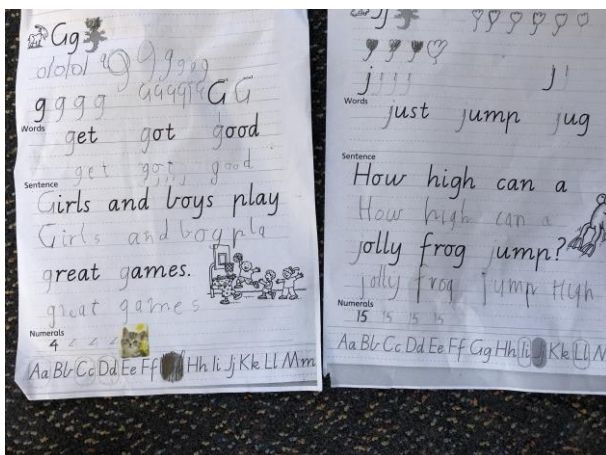 Gg
g g g g g g
g g g g G G
Words
get got good
get got good
Sentence
Girls and boys play
Girls and boy pla
great games.
great games
Numerals
4
Aa Bb Cc Dd Ee Ff Hh Ii Jj Kk Ll Mm
Jj
j j j j j
Words
just jump jug
Sentence
How high can a
How high can a
jolly frog jump?
jolly frog jump High
Numerals
15 15 15 15
Aa Bb Cc Dd Ee Ff Gg Hh Ii J Kk Ll N